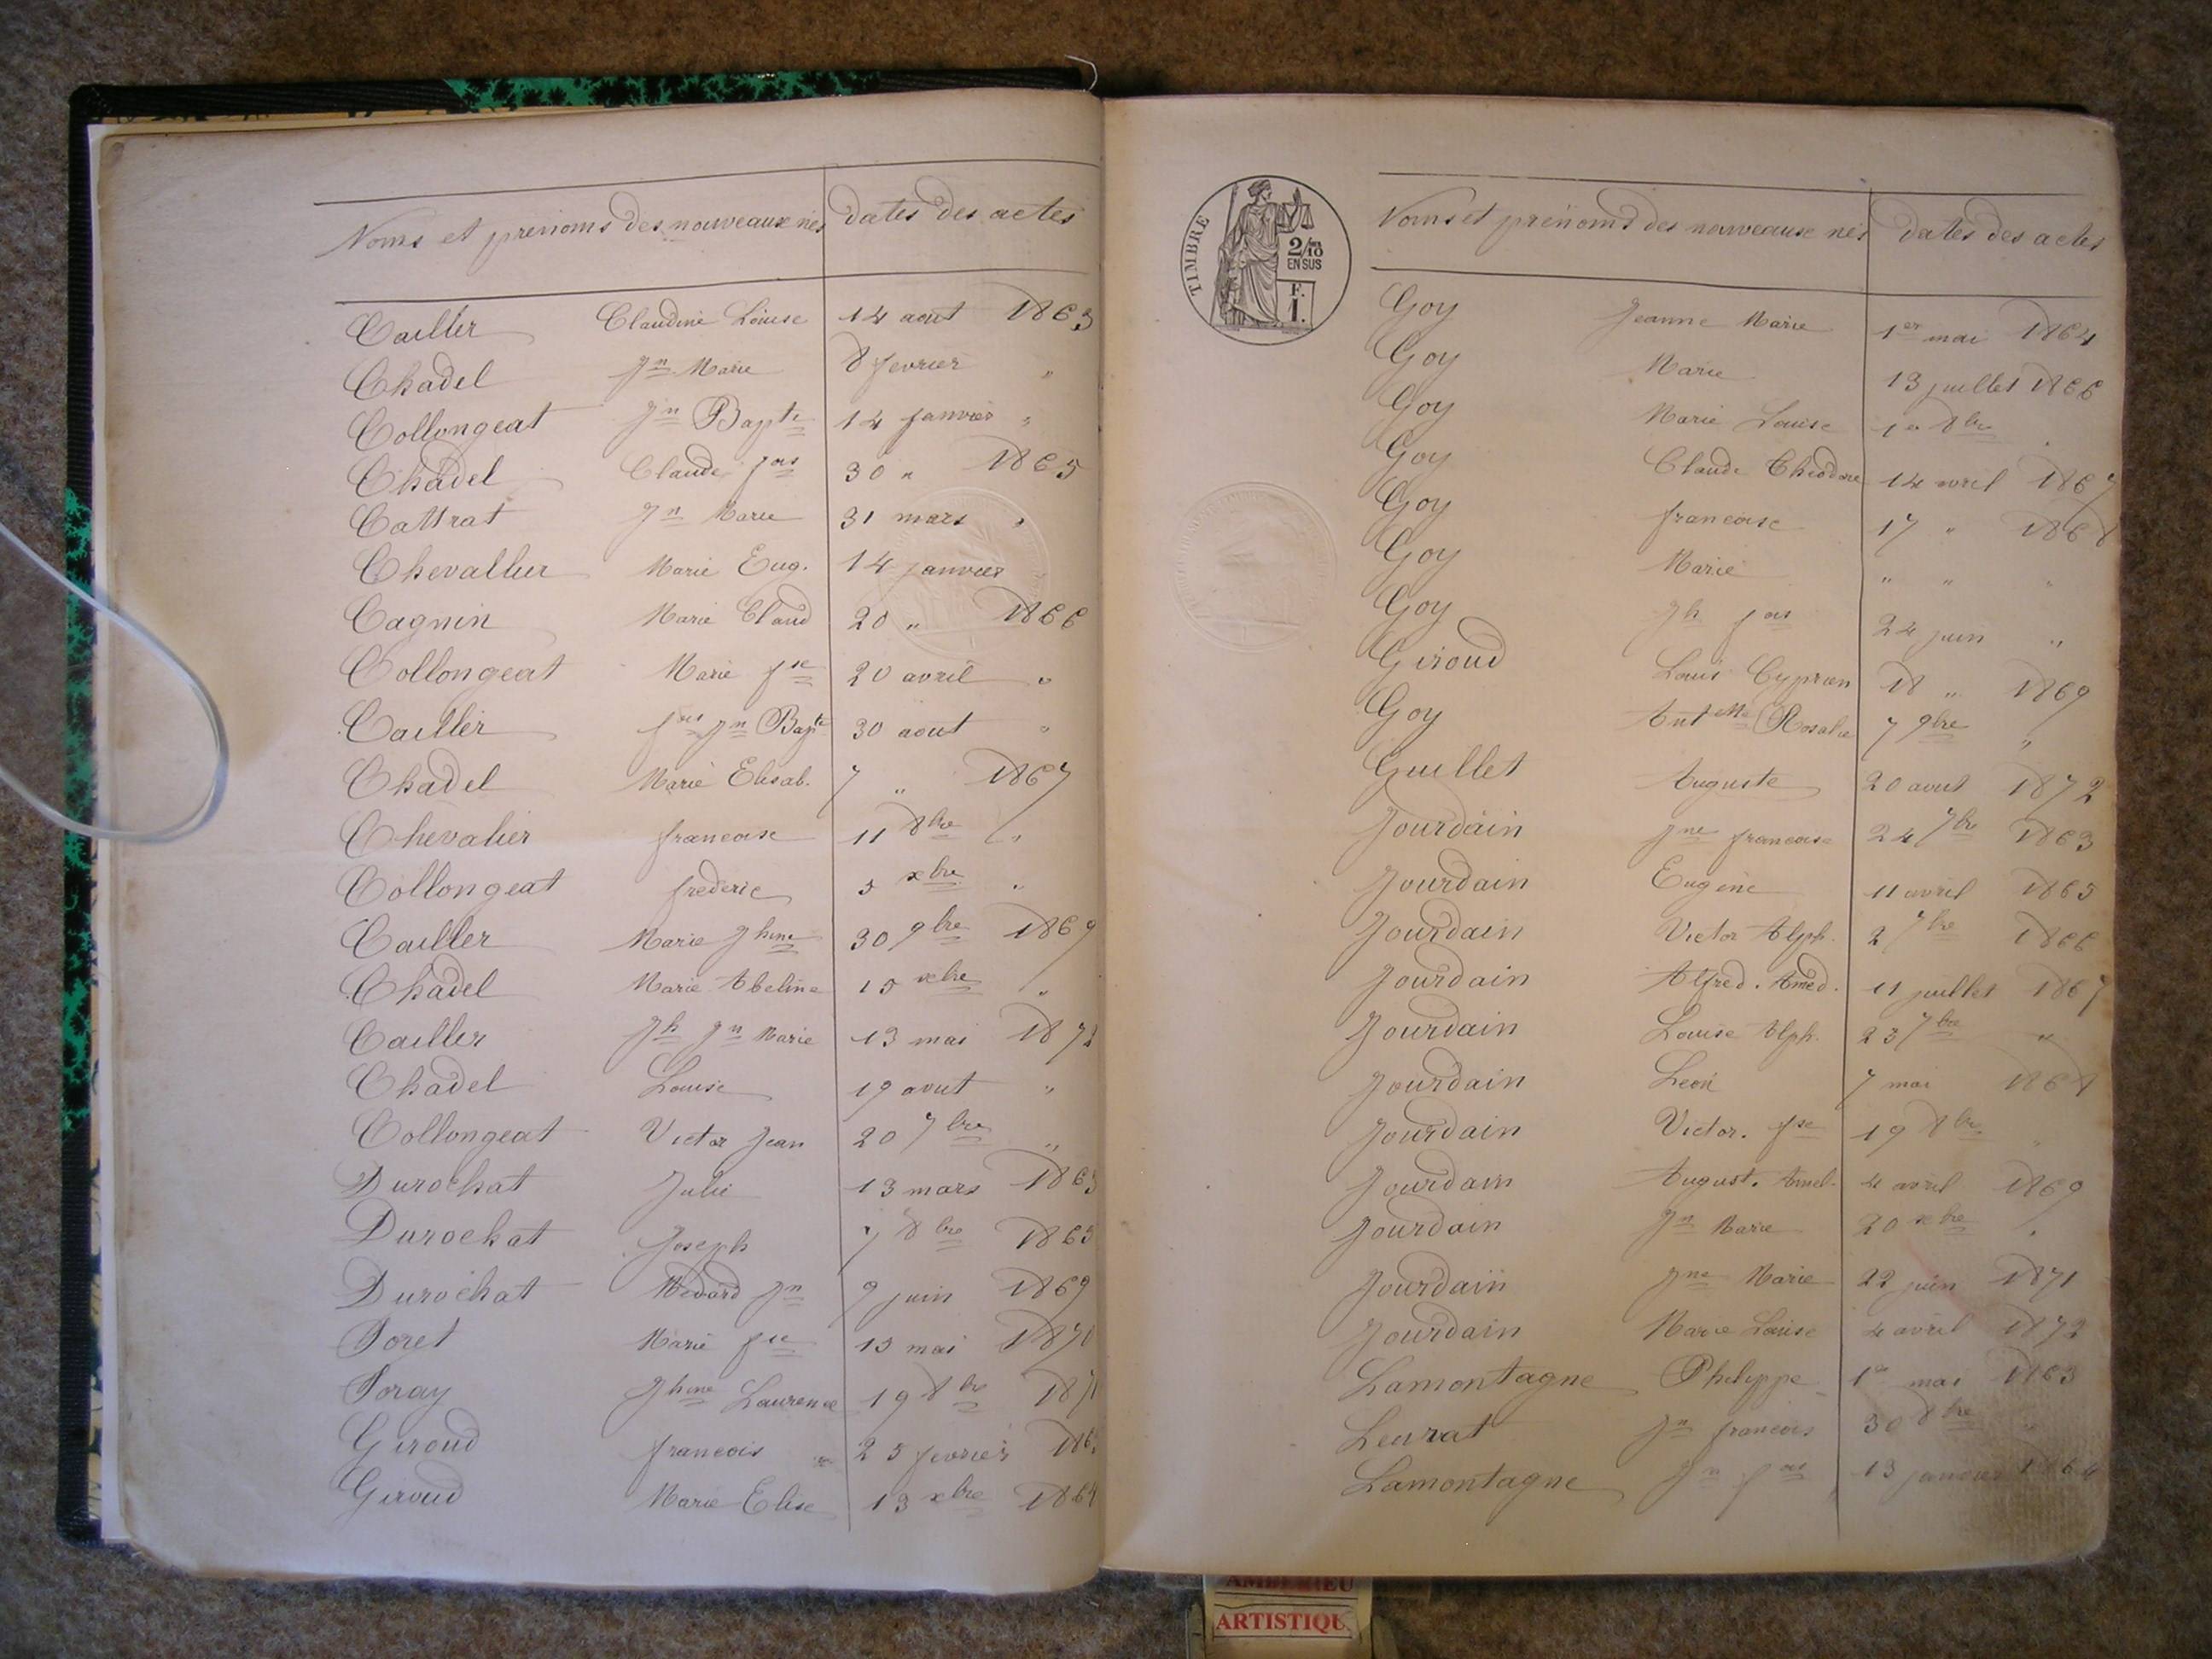 Noms et prénoms des nouveaux nés dates des actes
Cailler Claudine Louise 14 aout 1863
Chadel Jn Marie 8 fevrier "
Collongeat Jn Bapte 14 janvier "
Chadel Claude fois 30 " 1865
Cattrat Jn Marie 31 mars "
Chevallier Marie Eug. 14 janvier
Cagnin Marie Claud 20 " 1866
Collongeat Marie fse 20 avril "
Cailler fois Jn Bapte 30 aout "
Chadel Marie Elisab. 7 " 1867
Chevalier francoise 11 8bre "
Collongeat frederic 5 xbre "
Cailler Marie Jhine 30 9bre 1869
Chadel Marie Abeline 15 xbre "
Cailler Jh Jn Marie 13 mai 1872
Chadel Louise 19 aout "
Collongeat Victor Jean 20 7bre "
Durochat Julie 13 mars 1863
Durochat Joseph 7 8bre 1865
Durochat Médard Jn 9 juin 1869
Foret Marie fse 15 mai 1870
Foray Jhine Laurence 19 8bre 1871
Giroud francois 25 fevrier
Giroud Marie Elise 13 xbre 1864
TIMBRE
2/10
EN SUS
F.
1.
Noms et prénoms des nouveaux nés dates des actes
Goy Jeanne Marie 1er mai 1864
Goy Marie 13 juillet 1866
Goy Marie Louise 1er 8bre "
Goy Claude Théodore 14 avril 1867
Goy francoise 17 " 1868
Goy Marie " " "
Goy Jh fois 24 juin "
Giroud Louis Cyprien 18 " 1869
Goy Antette Rosalie 7 9bre "
Guillet Auguste 20 aout 1872
Jourdain Jne francoise 24 7bre 1863
Jourdain Eugène 11 avril 1865
Jourdain Victor Alph. 2 7bre 1866
Jourdain Alfred. Amed. 11 juillet 1867
Jourdain Louise Alph. 23 7bre "
Jourdain Leon 7 mai 1868
Jourdain Victor. fse 19 8bre "
Jourdain August. Amel. 4 avril 1869
Jourdain Jn Marie 20 xbre "
Jourdain Jne Marie 22 juin 1871
Jourdain Marie Louise 4 avril 1872
Lamontagne Philippe 1er mai 1863
Leurat Jn francois 30 8bre "
Lamontagne Jn fois 13 janvier 1864
AMBERIEU
ARTISTIQU